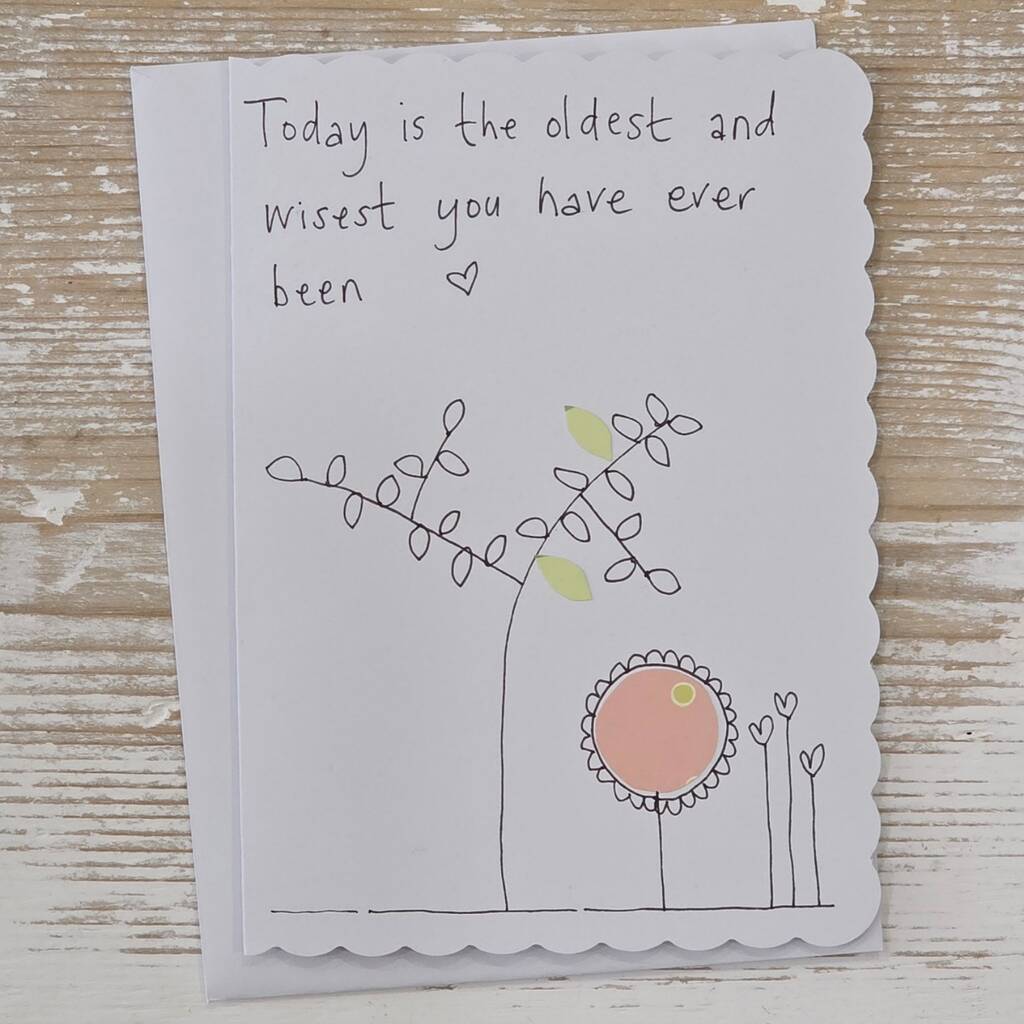 Today is the oldest and
wisest you have ever
been ♡